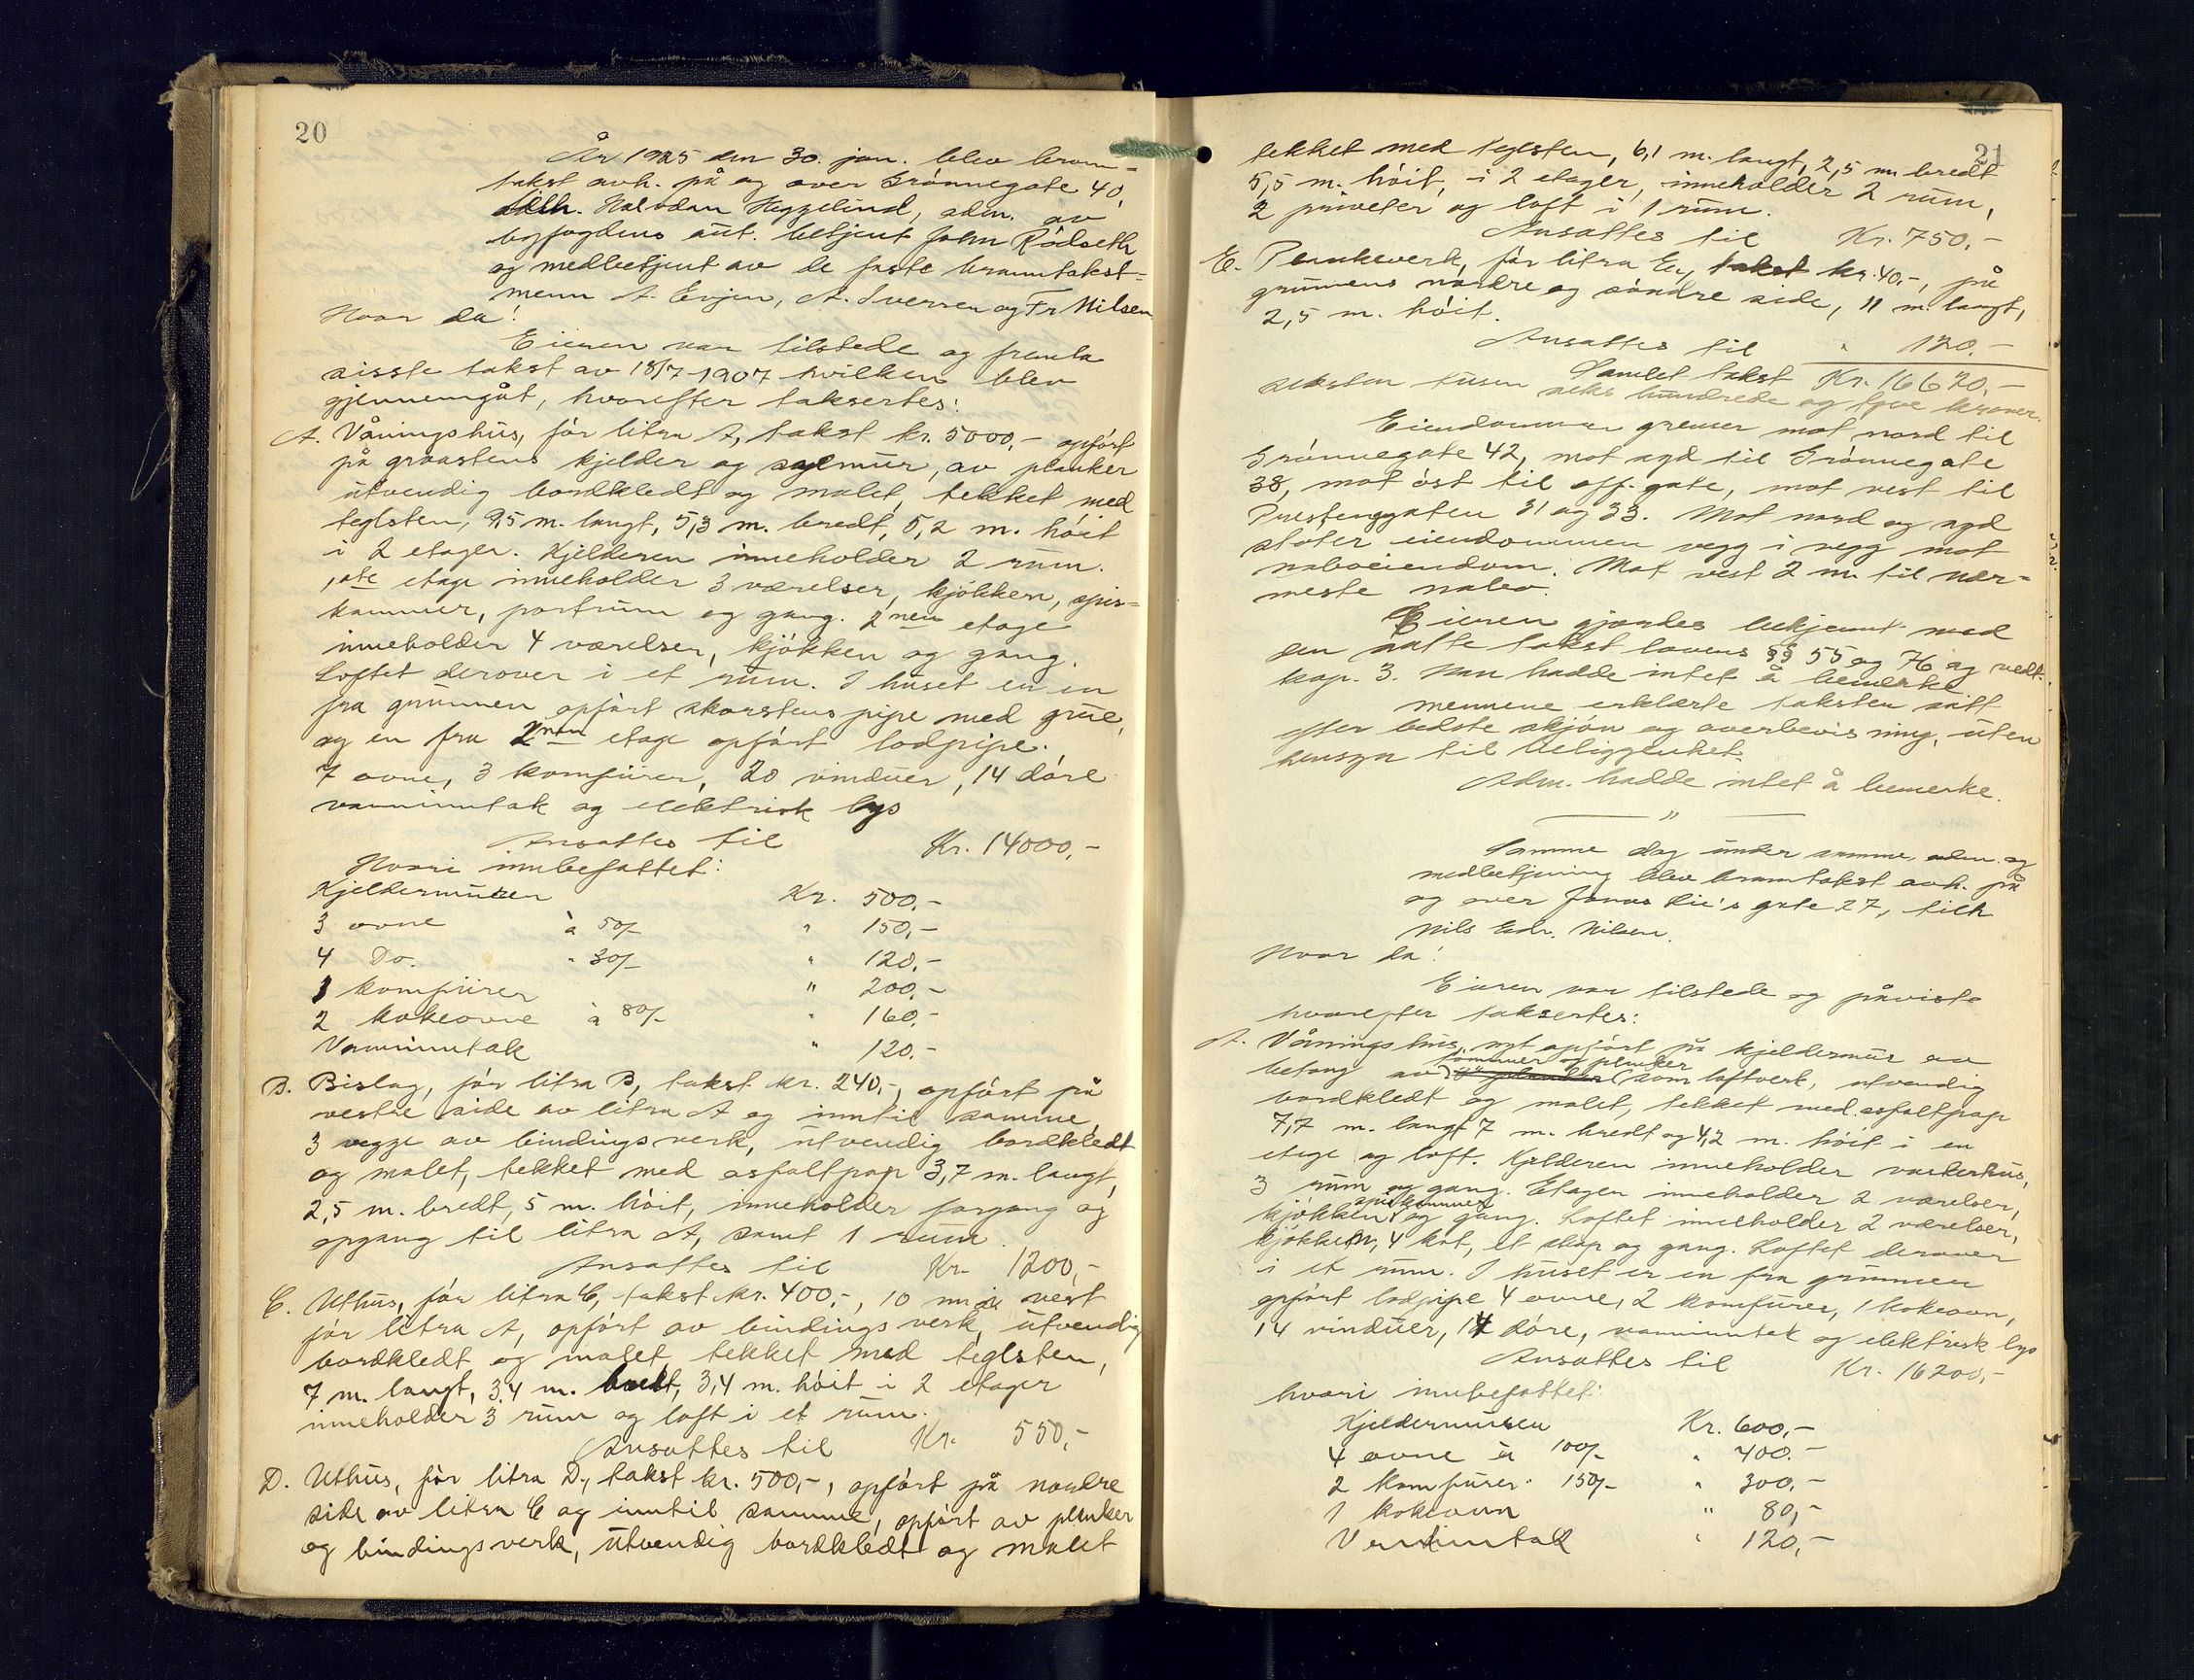 20
År 1925 den 30. jan. blev brann-
takst avh. på og over Grønnegate 40,
tilh. Halvdan Heggelund, adm. av
byfogdens aut. betjent John Rødseth
og medbetjent av de faste branntakst-
menn A. Evjen, A. Iversen og Fr Nilsen
Hvor da!
Eieren var tilstede og fremla
sisste takst av 18/7-1907 hvilken blev
gjennemgåt, hvorefter taksertes:
A. Våningshus, før litra A, takst kr. 5000,- opført
på graastens kjelder og mur, av planker
utvendig bordkledt og malet, tekket med
teglsten, 9,5 m. langt, 5,3 m. bredt, 5,2 m. høit
i 2 etager. Kjelderen inneholder 2 rum.
1ste etage inneholder 3 værelser, kjøkken, spis-
kammer, portrum og gang. 2nen etage
inneholder 4 værelser, kjøkken og gang.
Loftet derover i et rum. I huset er en
fra grunnen opført skorstenspipe med grue,
og en fra 2nen etage opført lodpipe.
7 ovne, 3 komfürer, 20 vinduer, 14 døre
vanninntak og elektrisk lys
Ansattes til Kr. 14000,-
Hvori innbefattet:
Kjeldermuren Kr. 500,-
3 ovne à 50/- " 150,-
4 Do. " 30/- " 120,-
1 komfürer " 200,-
2 kokeovne à 80/- " 160,-
Vanninntak " 120,-
B. Bislag, før litra B, takst kr. 240,-, opført på
vestre side av litra A og inntil samme,
3 vegge av bindingsverk, utvendig bordkledt
og malet, tekket med asfaltpap 3,7 m. langt,
2,5 m. bredt, 5 m. høit, inneholder forgang og
opgang til litra A, samt 1 rum.
Ansattes til Kr. 1200,-
C. Uthus, før litra C, takst kr. 400,-, 10 m i vest
før litra A, opført av bindingsverk, utvendig
bordkledt og malet, tekket med teglsten,
7 m. langt, 3,4 m. bredt, 3,4 m. høit i 2 etager
inneholder 3 rum og loft i et rum.
Ansattes til Kr. 550,-
D. Uthus, før litra D., takst kr. 500,-, opført på nordre
side av litra C og inntil samme, opført av planker
og bindingsverk, utvendig bordkledt og malet
21
tekket med teglsten, 6,1 m. langt, 2,5 m bredt
5,5 m. høit, i 2 etager, inneholder 2 rum,
2 priveter og loft i 1 rum.
Ansattes til Kr. 750,-
E. Plankeverk, før litra E, takst kr. 40,-, på
grunnens nordre og søndre side, 11 m. langt,
2,5 m. høit.
Ansattes til " 120,-
Samlet takst Kr. 16620,-
seksten tusen seks hundrede og tyve kroner.
Eiendommen grenser mot nord til
Grønnegate 42, mot syd til Grønnegate
38, mot øst til off. gate, mot vest til
Prestenggaten 31 og 33. Mot nord og syd
støter eiendommen vegg i vegg mot
naboeiendom. Mot vest 2 m. til nær-
meste nabo.
Eieren gjordes bekjent med
den satte takst lovens §§ 55 og 76 og vedt.
kap. 3. Han hadde intet å bemerke
mennene erklærte taksten satt
efter bedste skjøn og overbevisning, uten
hensyn til beliggenhet.
Adm. hadde intet å bemerke.
"
Samme dag under samme adm. og
medbetjening blev branntakst avh. på
og over Jonas Lie's gate 27, tilh
Nils Edr. Nilsen.
Hvor da!
Eieren var tilstede og påviste
hvorefter taksertes:
A. Våningshus, nyt opført på kjeldermur av
betong av tømmer og planker som loftverk, utvendig
bordkledt og malet, tekket med asfaltpap
7,7 m. langt 7 m. bredt og 4,2 m. høit i en
etage og loft. Kjelderen inneholder vaskerhus,
3 rum og gang. Etagen inneholder 2 værelser,
kjøkken, spiskammer og gang. Loftet inneholder 2 værelser,
kjøkken, 4 kot, et skap og gang. Loftet derover
i et rum. I huset er en fra grunnen
opført lodpipe 4 ovne, 2 komfürer, 1 kokeovn,
14 vinduer, 14 døre, vanninntak og elektrisk lys
Ansattes til Kr. 16200,-
hvori innbefattet:
Kjeldermuren Kr. 600,-
4 ovne à 100/- " 400.-
2 komfürer " 150/- " 300,-
1 kokeovn " 80,-
Vanninntak " 120,-